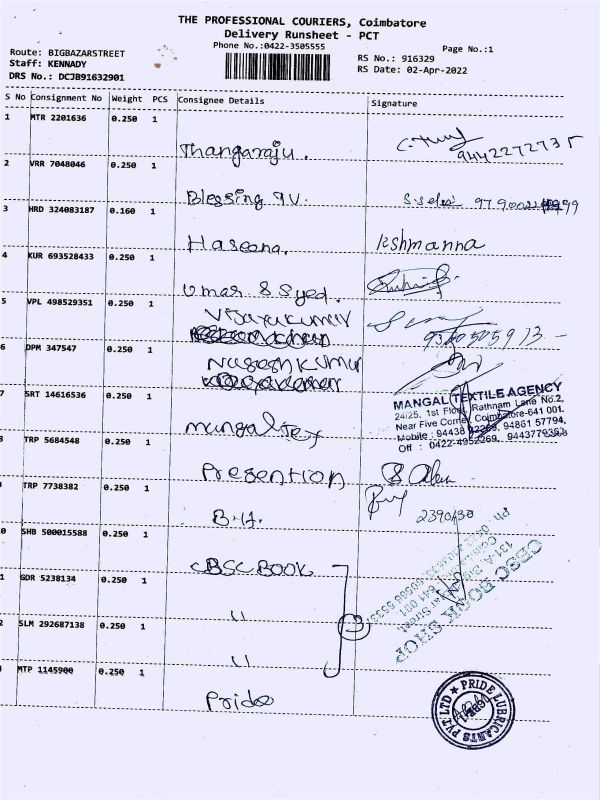 THE PROFESSIONAL COURIERS, Coimbatore
Delivery Runsheet - PCT
Phone No.:0422-3505555
Page No.:1
Route: BIGBAZARSTREET
Staff: KENNADY
DRS No.: DCJB91632901
RS No.: 916329
RS Date: 02-Apr-2022
S No Consignment No Weight PCS Consignee Details Signature
1 MTR 2201636 0.250 1
Thangaraju. 9442272735
2 VRR 7048046 0.250 1
Blessing TV.
3 HRD 324083187 0.160 1
Haseena. Kshmanna
4 KUR 693528433 0.250 1
Umar & Syed.
5 VPL 498529351 0.250 1
Vijayakumar
6 DPM 347547 0.250 1
Nagesh Kumar
7 SRT 14616536 0.250 1
mangal tex
MANGAL TEXTILE AGENCY
24/25, 1st Floor, Rathnam Lane No.2,
Near Five Corner, Coimbatore-641 001.
Mobile : 94438 92269, 94861 57794,
Off : 0422-4952269, 9443779353
8 TRP 5684548 0.250 1
Presention
9 TRP 7738382 0.250 1
B.H. 2390430
0 SHB 500015588 0.250 1
CBSC BOOK
CBSC BOOK SHOP
1 GDR 5238134 0.250 1
"
2 SLM 292687138 0.250 1
"
3
MTP 1145900 0.250 1
Pride
PRIDE LUBRICANTS PVT LTD